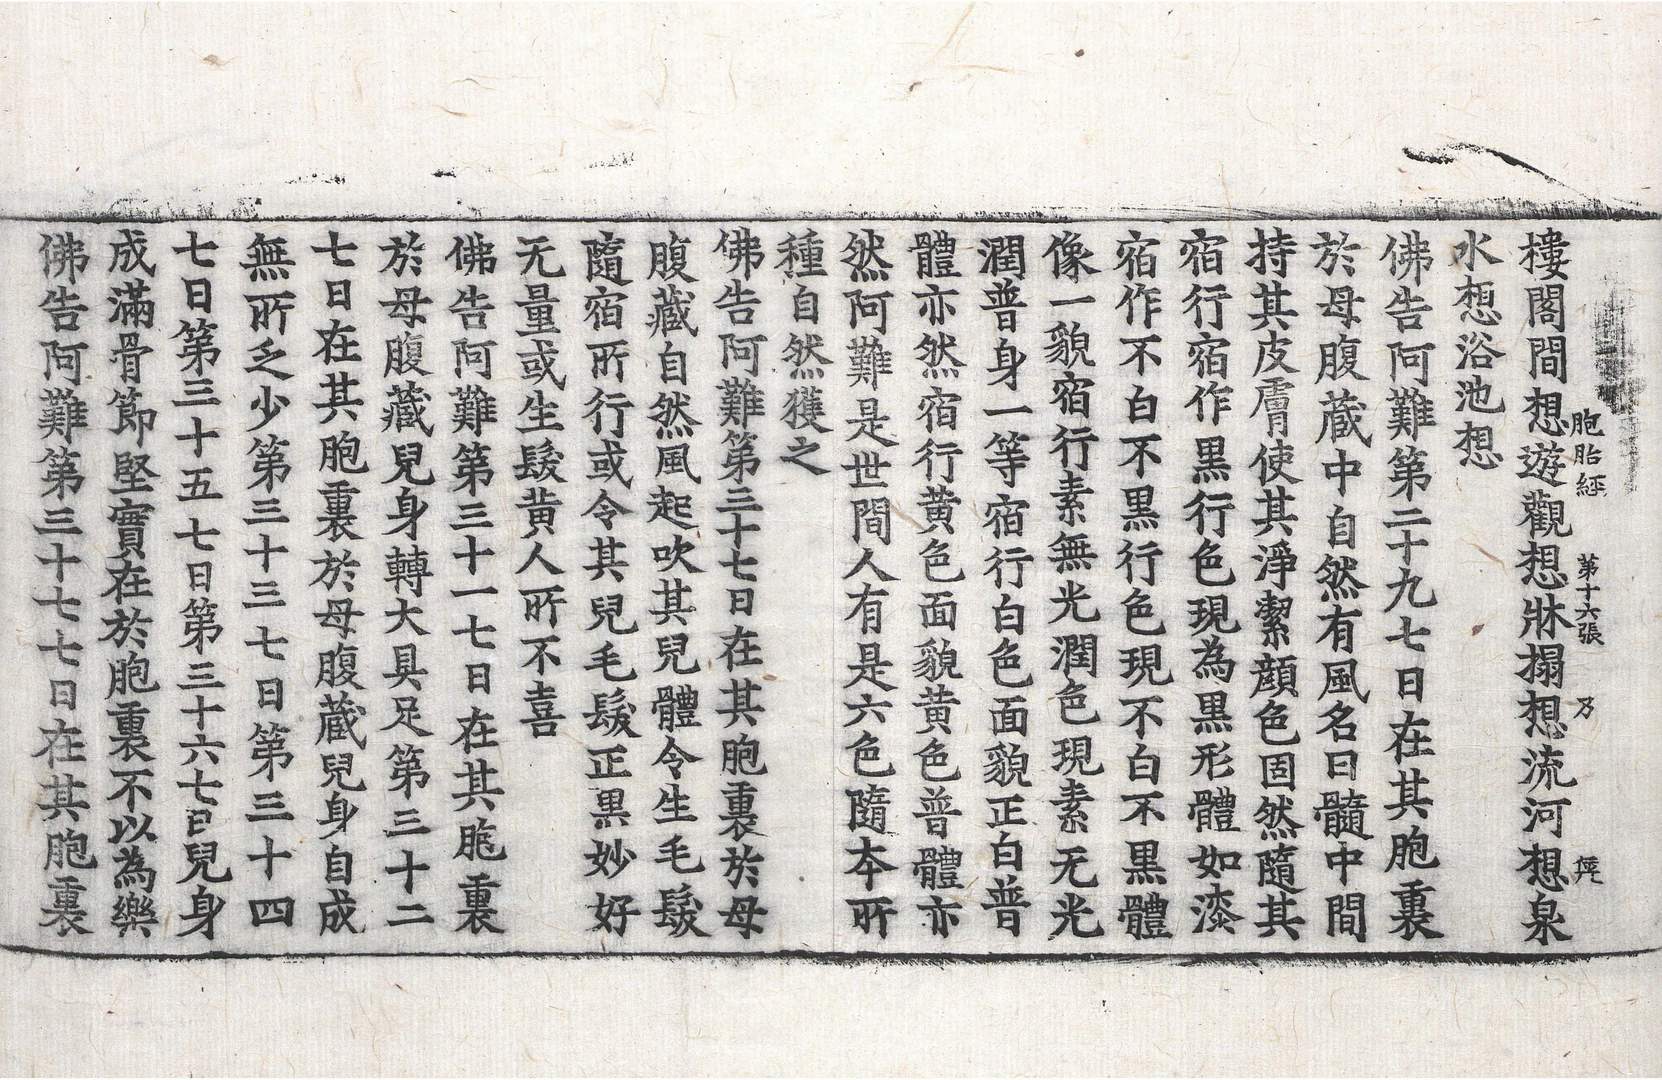 胞胎經 第十六張 乃
樓閣間想遊觀想牀搨想流河想泉
水想浴池想
佛告阿難第二十九七日在其胞裏
於母腹藏中自然有風名曰髓中間
持其皮膚使其淨潔顔色固然隨其
宿行宿作黒行色現為黒形體如漆
宿作不白不黒行色現不白不黒體
像一貌宿行素無光潤色現素无光
潤普身一等宿行白色面貌正白普
體亦然宿行黄色面貌黄色普體亦
然阿難是世間人有是六色隨本所
種自然獲之
佛告阿難第三十七日在其胞裏於母
腹藏自然風起吹其兒體令生毛髮
隨宿所行或令其兒毛髮正黒妙好
无量或生髮黄人所不喜
佛告阿難第三十一七日在其胞裏
於母腹藏兒身轉大具足第三十二
七日在其胞裏於母腹藏兒身自成
無所乏少第三十三七日第三十四
七日第三十五七日第三十六七日兒身
成滿骨節堅實在於胞裏不以為樂
佛告阿難第三十七七日在其胞裏